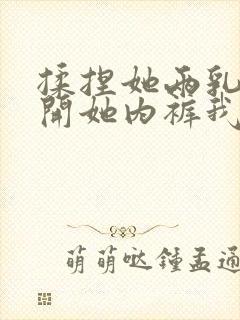 揉捏她两乳
開她内裤我
萌萌哒鍾孟通